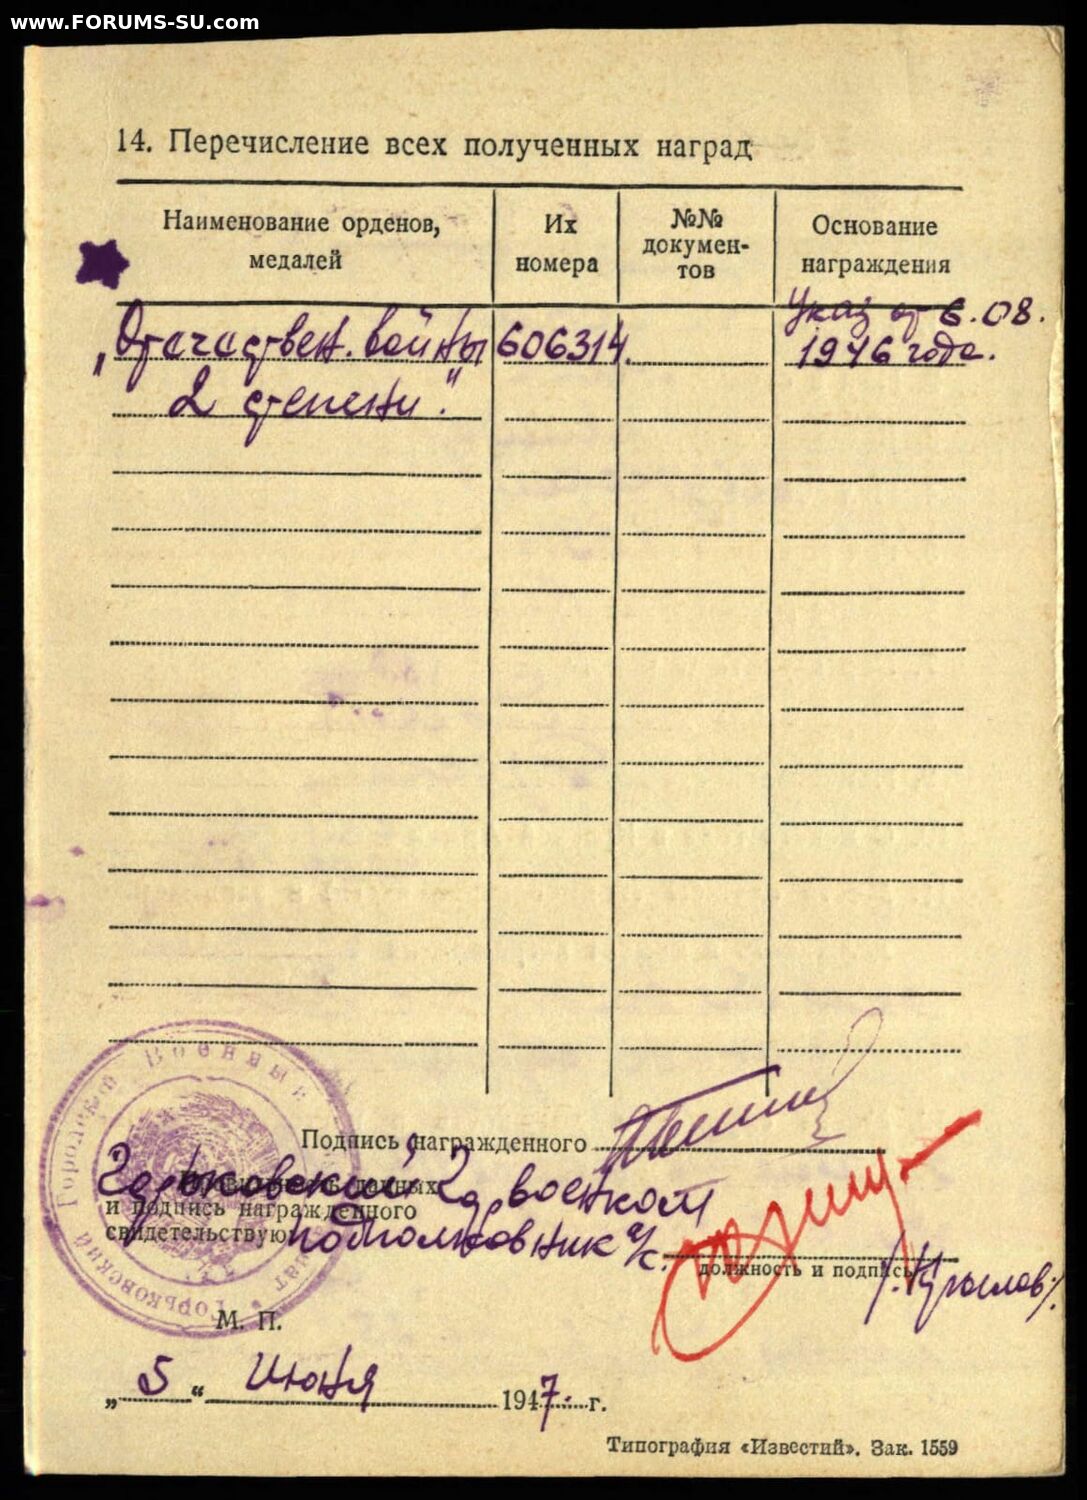 www.FORUMS-SU.com
14. Перечисление всех полученных наград
Наименование орденов, медалей
Их номера
№№ документов
Основание награждения
„Отечествен. войны 606314. Указ от 6.08.
2 степени." 1946 года.
Подпись награжденного
данных
Горьковский Гор военком
и подпись награжденного
свидетельствую
подполковник а/с.
должность и подпись
/Крылов/.
Городской Военный
Горьковский
М. П.
„5“ Июня 1947. г.
Типография «Известий». Зак. 1559